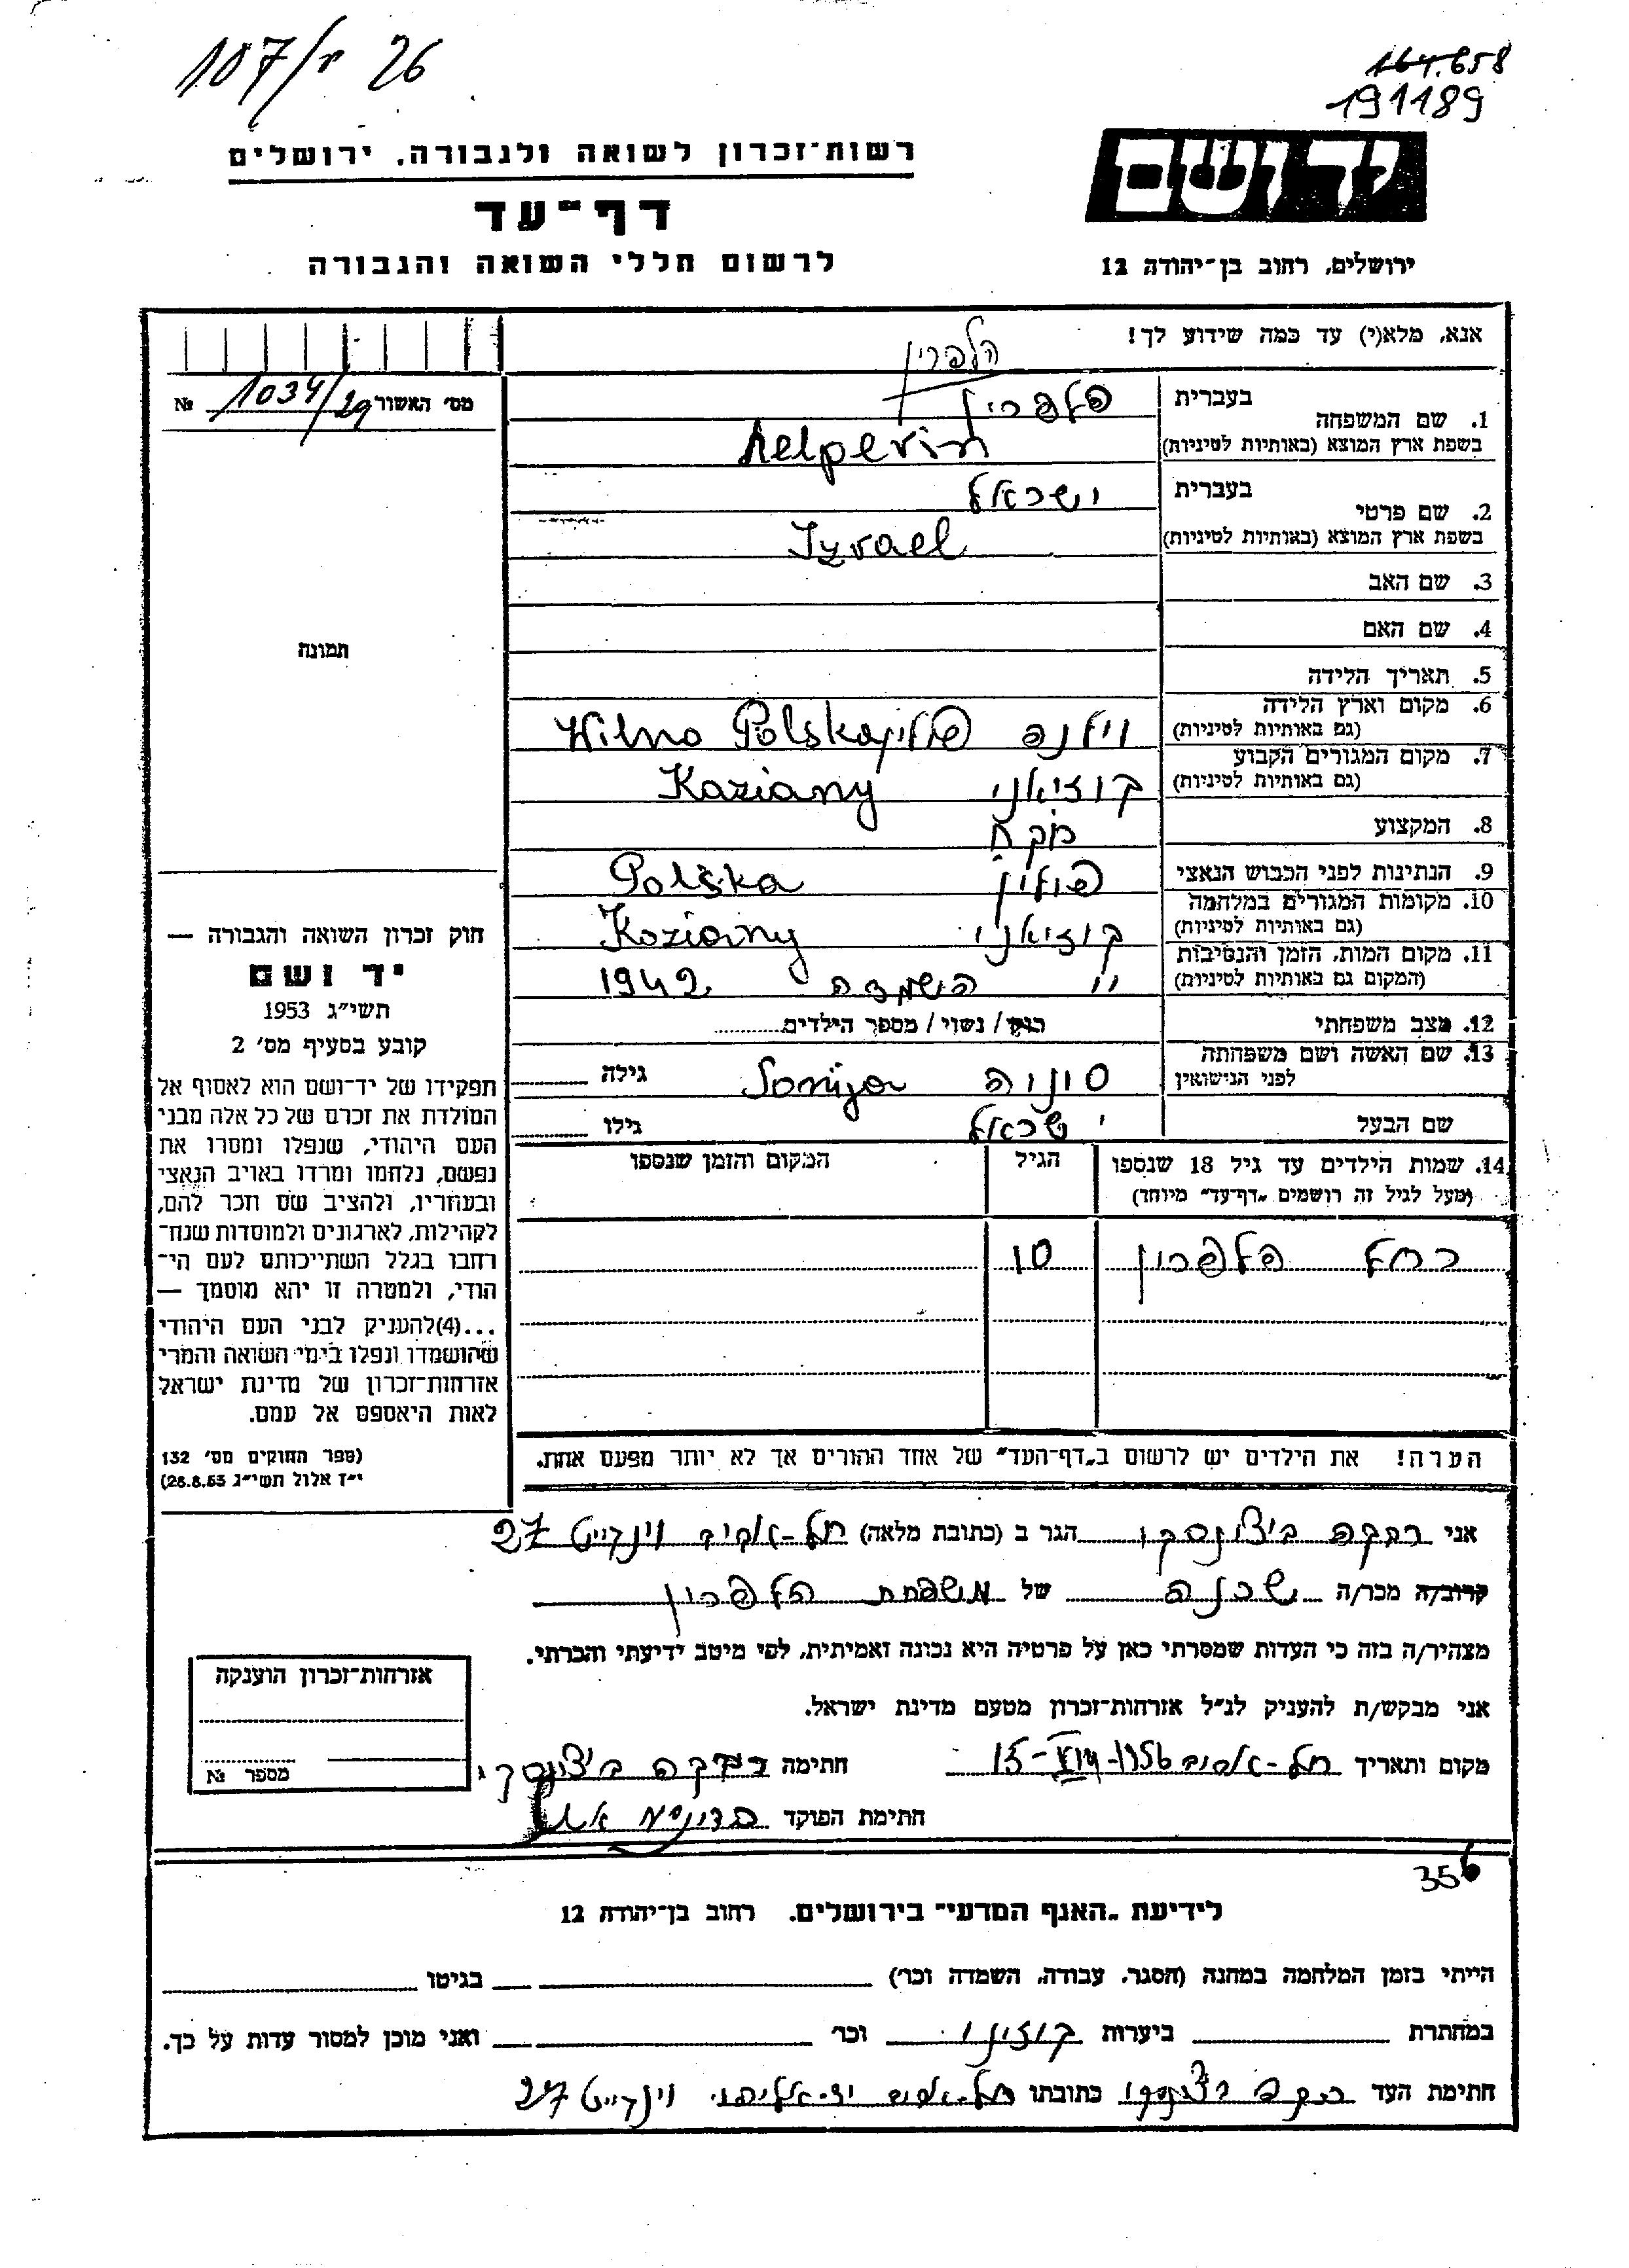 107/י 26
164.658
191189
יד ושם
ירושלים, רחוב בן־יהודה 12
רשות־זכרון לשואה ולגבורה, ירושלים
דף־עד
לרשום חללי השואה והגבורה
אנא, מלא(י) עד כמה שידוע לך!
הלפרין
מס׳ האשור 1034/29 №
1. שם המשפחה בעברית הלפרין
בשפת ארץ המוצא (באותיות לטיניות) helperin
2. שם פרטי בעברית ישראל
בשפת ארץ המוצא (באותיות לטיניות) Izrael
3. שם האב
4. שם האם
תמונה
5. תאריך הלידה
6. מקום וארץ הלידה (גם באותיות לטיניות) וילנה פולין Wilno Polska
7. מקום המגורים הקבוע (גם באותיות לטיניות) קוזיאני Kaziany
8. המקצוע
9. הנתינות לפני הכבוש הנאצי פולין Polska
10. מקומות המגורים במלחמה (גם באותיות לטיניות) קוזיאני Koziany
11. מקום המות, הזמן והנסיבות (המקום גם באותיות לטיניות) " השמדה 1942
12. מצב משפחתי רוק / נשוי / מספר הילדים
13. שם האשה ושם משפחתה לפני הנישואין סוניה Sonija גילה
שם הבעל ישראל גילו
14. שמות הילדים עד גיל 18 שנספו הגיל המקום והזמן שנספו
(מעל לגיל זה רושמים „דף־עד״ מיוחד)
רחל הלפרין 10
הערה! את הילדים יש לרשום ב„דף־העד״ של אחד ההורים אך לא יותר מפעם אחת.
חוק זכרון השואה והגבורה —
יד ושם
תשי״ג 1953
קובע בסעיף מס׳ 2
תפקידו של יד־ושם הוא לאסוף אל
המולדת את זכרם של כל אלה מבני
העם היהודי, שנפלו ומסרו את
נפשם, נלחמו ומרדו באויב הנאצי
ובעוזריו, ולהציב שם וזכר להם,
לקהילות, לארגונים ולמוסדות שנח־
רבו בגלל השתייכותם לעם הי־
הודי, ולמטרה זו יהא מוסמך —
...(4)להעניק לבני העם היהודי
שהושמדו ונפלו בימי השואה והמרי
אזרחות־זכרון של מדינת ישראל
לאות היאספם אל עמם.
(ספר החוקים מס׳ 132
י״ז אלול תשי״ג 28.8.53)
אני רבקה הגר ב (כתובת מלאה) תל-אביב וינגייט 27
קרוב/ה מכר/ה שכנה של משפחת הלפרין
מצהיר/ה בזה כי העדות שמסרתי כאן על פרטיה היא נכונה ואמיתית, לפי מיטב ידיעתי והכרתי.
אני מבקש/ת להעניק לנ״ל אזרחות־זכרון מטעם מדינת ישראל.
מקום ותאריך תל-אביב 1956 חתימה רבקה
חתימת הפוקד
אזרחות־זכרון הוענקה
מספר №
356
לידיעת „האגף המדעי״ בירושלים. רחוב בן־יהודה 12
הייתי בזמן המלחמה במחנה (הסגר, עבודה, השמדה וכר׳) בגיטו
במחתרת ביערות וכר׳ ואני מוכן למסור עדות על כך.
חתימת העד רבקה כתובתו תל-אביב יד-אליהו וינגייט 27